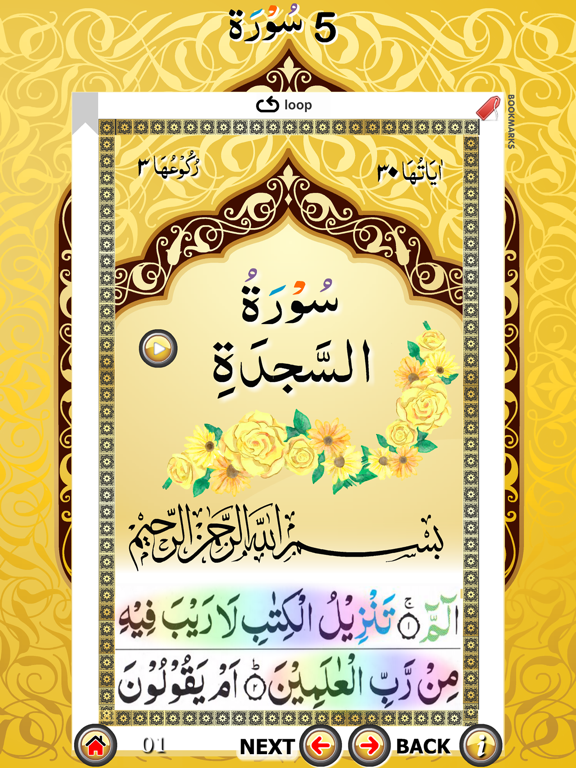 5 سُوْرَة
loop
BOOKMARKS
اٰيَاتُهَا ٣٠
رُكُوْعُهَا ٣
سُوْرَةُ
السَّجدَةِ
بسم الله الرحمن الرحيم
الٓمّٓ ۚ ﴿١﴾ تَنْزِيْلُ الْكِتٰبِ لَا رَيْبَ فِيْهِ
مِنْ رَّبِّ الْعٰلَمِيْنَ ؕ ﴿٢﴾ اَمْ يَقُوْلُوْنَ
01 NEXT BACK i